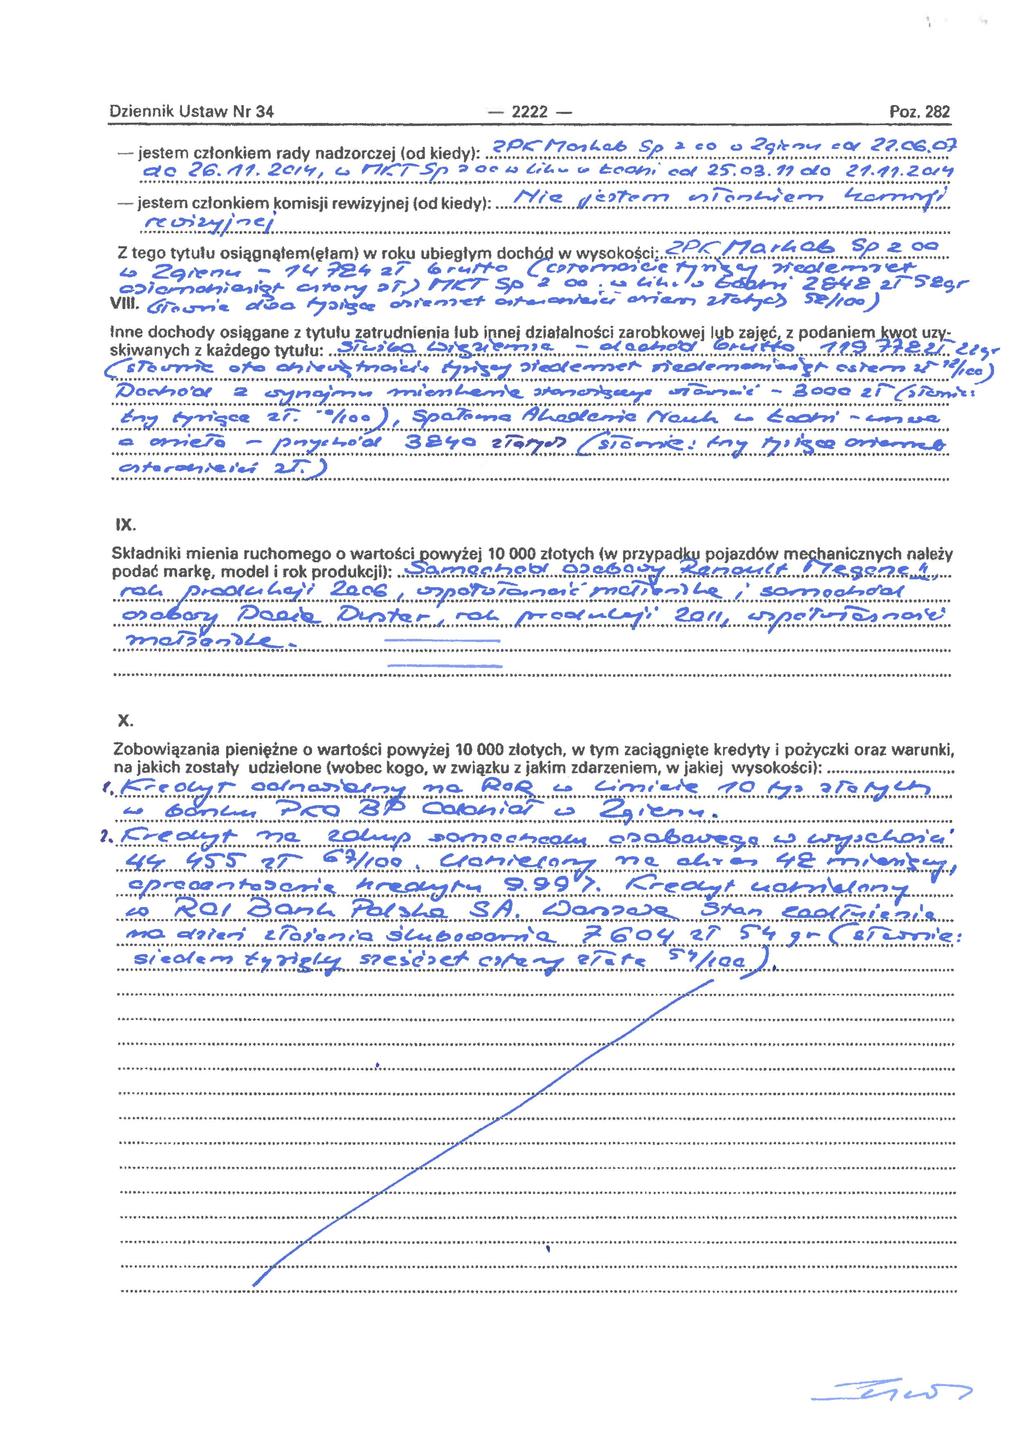 Dziennik Ustaw Nr 34 — 2222 — Poz. 282
— jestem członkiem rady nadzorczej (od kiedy): ZPK Markab Sp z oo w Zgierzu od 22.06.07
do 26.11.2014, w MKT Sp z oo w Lik. w Łodzi od 25.03.11 do 21.11.2014
— jestem członkiem komisji rewizyjnej (od kiedy): Nie jestem członkiem komisji
rewizyjnej
Z tego tytułu osiągnąłem(ęłam) w roku ubiegłym dochód w wysokości: ZPK Markab Sp z oo
w Zgierzu – 14 724 zł brutto (czternaście tysięcy siedemset
cztery zł) MKT Sp z oo w Lik. w Łodzi 2842 zł 52gr
VIII. (słownie dwa tysiące osiemset czterdzieści złotych 52/100)
Inne dochody osiągane z tytułu zatrudnienia lub innej działalności zarobkowej lub zajęć, z podaniem kwot uzy-
skiwanych z każdego tytułu: Służba Więzienna – dochód brutto 119 778 zł
(słownie sto dziewiętnaście tysięcy siedemset siedemdziesiąt osiem zł /100)
Dochód z wynajmu mieszkania stanowiącego własność – 3000 zł (słownie:
trzy tysiące zł. /100), Społeczna Akademia Nauk w Łodzi – umowa
o dzieło – przychód 3840 złotych (słownie: trzy tysiące osiemset
czterdzieści zł.)
IX.
Składniki mienia ruchomego o wartości powyżej 10 000 złotych (w przypadku pojazdów mechanicznych należy
podać markę, model i rok produkcji): Samochód osobowy Renault Megane II,
rok produkcji 2006, współwłasność małżeńska, samochód
osobowy Dacia Duster, rok produkcji 2011, współwłasność
małżeńska.
X.
Zobowiązania pieniężne o wartości powyżej 10 000 złotych, w tym zaciągnięte kredyty i pożyczki oraz warunki,
na jakich zostały udzielone (wobec kogo, w związku z jakim zdarzeniem, w jakiej wysokości):
1. Kredyt odnawialny na RoR w limicie 10 tys złotych
w banku PKO BP Oddział w Zgierzu.
2. Kredyt na zakup samochodu osobowego w wysokości
44 455 zł 67/100. Udzielony na okres 42 miesięcy,
oprocentowanie kredytu 9.99%. Kredyt udzielony
w RCI Bank Polska SA. Warszawa Stan zadłużenia
na dzień złożenia ślubowania 7 604 zł 54 gr (słownie:
siedem tysięcy sześćset cztery złote 54/100).